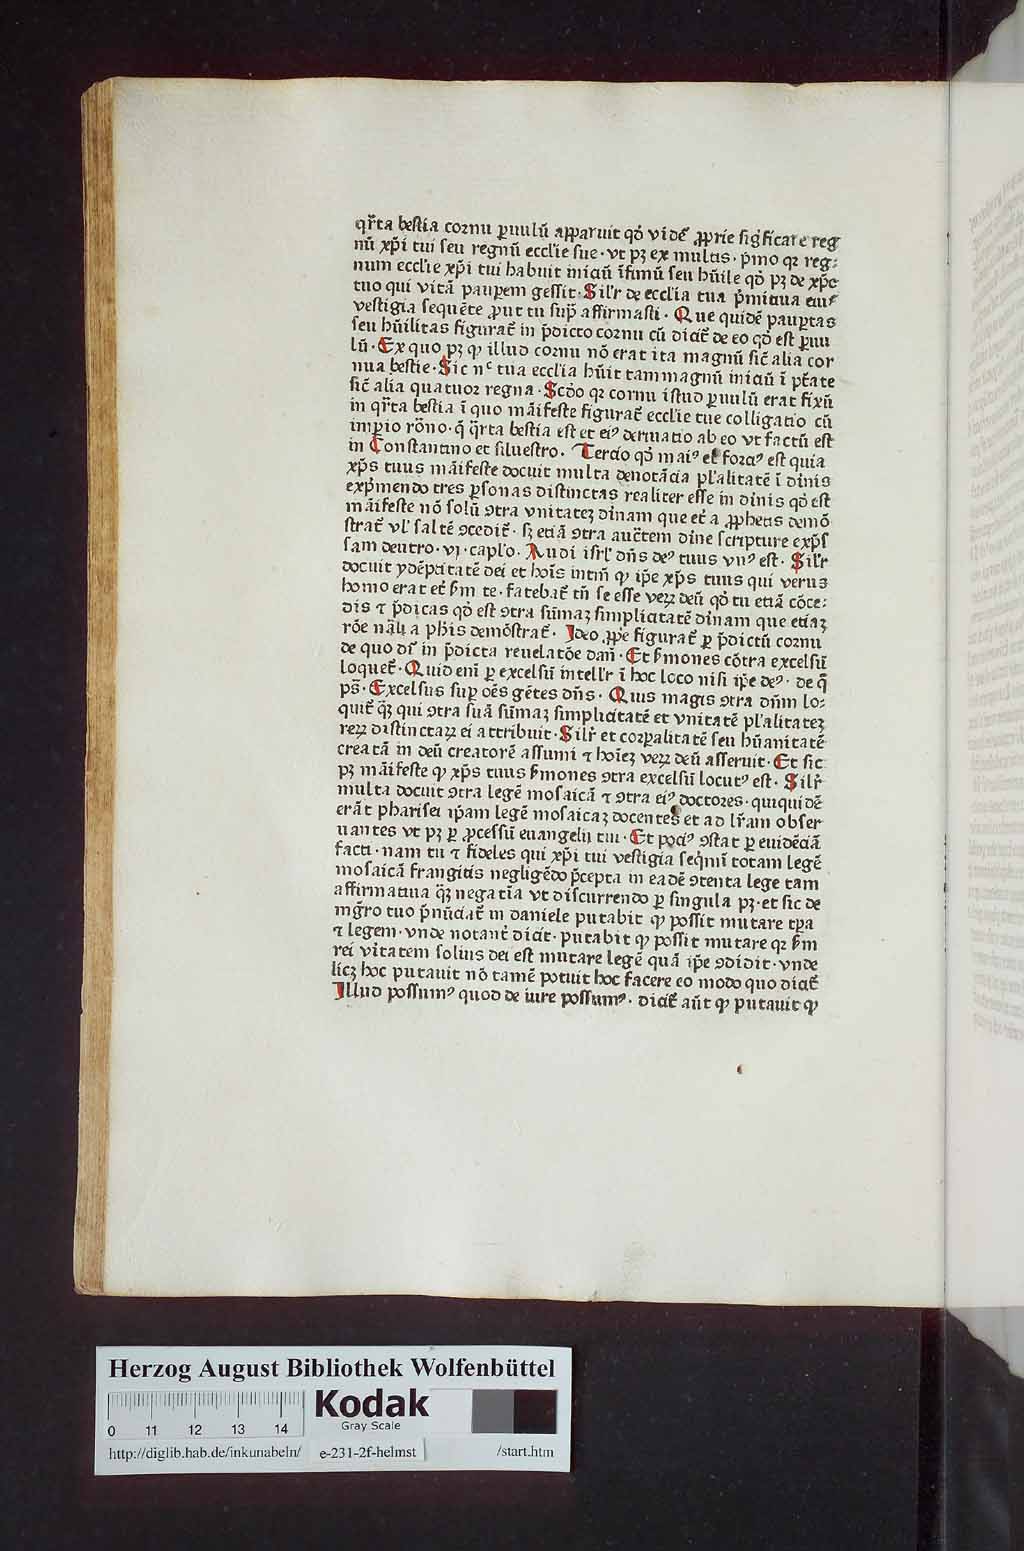 qr̄ta bestia cornu ꝑuulū apparuit qđ videt̄ ꝓprie significare reg
nū xp̄i tui seu regnū eccl'ie sue · vt pꝫ ex multis · p̄mo qꝛ reg⸗
num eccl'ie xp̄i tui habuit iniciū īfimū seu hūile qđ pꝫ de xp̄o
tuo qui vitā pauꝑem gessit · Sil'r de eccl'ia tua p̄mitiua eiꝰ
vestigia sequēte ꝓut tu sup̄ affirmasti · Que quidē pauꝑtas
seu hūilitas figurat̄ in p̄dicto cornu cū dicit̄ de eo qđ est ꝑuu
lū · Ex quo pꝫ ꝙ illud cornu nō erat ita magnū sic̄ alia cor
nua bestie · Sic nᶜ tua eccl'ia hūit tam magnū iniciū ī pt̄ate
sic̄ alia quatuor regna · Scd̄o qꝛ cornu istud ꝑuulū erat fixū
in qr̄ta bestia ī quo māifeste figurat̄ eccl'ie tue colligatio cū
imꝑio rōno · q̄ qr̄ta bestia est et eiꝰ deriuatio ab eo vt factū est
in Constantino et siluestro . Tercio qđ maiꝰ et forciꝰ est quia
xp̄s tuus māifeste docuit multa denotācia pl'alitatē ī diuīis
exp̄mendo tres ꝑsonas distinctas realiter esse in diuīis qđ est
māifeste nō solū ꝯtra vnitateꝫ diuīam que et̄ a ꝓphetis demō
strat̄ vl' saltē ꝯcedit̄ · sꝫ etiā ꝯtra auct̄em diuīe scripture exp̄s
sam deutro · vj · capl'o . Audi isrl' dn̄s deꝰ tuus vnꝰ est . Sil'r
docuit ydēptitatē dei et hoīs intm̄ ꝙ ip̄e xp̄s tuus qui verus
homo erat et s̄m te · fatebat̄ tn̄ se esse veꝝ deū qđ tu etiā cōce⸗
dis ⁊ p̄dicas qđ est ꝯtra sūmaꝫ simplicitatē diuīam que etiaꝫ
rōe nāli a ph̄is demōstrat̄ . Ideo ꝓp̄e figurat̄ ꝑ p̄dictū cornu
de quo dr̄ in p̄dicta reuelatōe dan̄ · Et s̄mones cōtra excelsū
loquet̄ · Quid enī ꝑ excelsū intell'r ī hoc loco nisi ip̄e deꝰ · de q̄
ps̄ · Excelsus suꝑ oēs gētes dn̄s . Quis magis ꝯtra dn̄m lo⸗
quit̄ qꝫ qui ꝯtra suā sūmaꝫ simplicitatē et vnitatē pl'alitateꝫ
reꝝ distinctaꝝ ei attribuit · Sil'r et corꝑalitatē seu hūanitatē
creatā in deū creatorē assumi ⁊ hoīeꝫ veꝝ deū asseruit · Et sic
pꝫ māifeste ꝙ xp̄s tuus s̄mones ꝯtra excelsū locutꝰ est . Sil'r
multa docuit ꝯtra legē mosaicā ⁊ ꝯtra eiꝰ doctores · qui quidē
erāt pharisei ip̄am legē mosaicaꝫ docentes et ad lr̄am obser
uantes vt pꝫ ꝑ ꝓcessū euangelij tui · Et pociꝰ ꝯstat ꝑ euidēciā
facti · nam tu ⁊ fideles qui xp̄i tui vestigia seqm̄i totam legē
mosaicā frangitis negligēdo p̄cepta in eadē ꝯtenta lege tam
affirmatiua qꝫ negatīa vt discurrendo ꝑ singula pꝫ · et sic de
mgr̄o tuo p̄nūciat̄ in daniele putabit ꝙ possit mutare tꝑa
⁊ legem · vnde notant̄ dicit · putabit ꝙ possit mutare qꝛ s̄m
rei v̄itatem solius dei est mutare legē quā ip̄e ꝯdidit · vnde
licꝫ hoc putauit nō tamē potuit hoc facere eo modo quo dicit̄
Illud possumꝰ quod de iure possumꝰ . dicit̄ aūt ꝙ putauit ꝙ
Herzog August Bibliothek Wolfenbüttel
0 11 12 13 14
Kodak
Gray Scale
http://diglib.hab.de/inkunabeln/ e-231-2f-helmst /start.htm